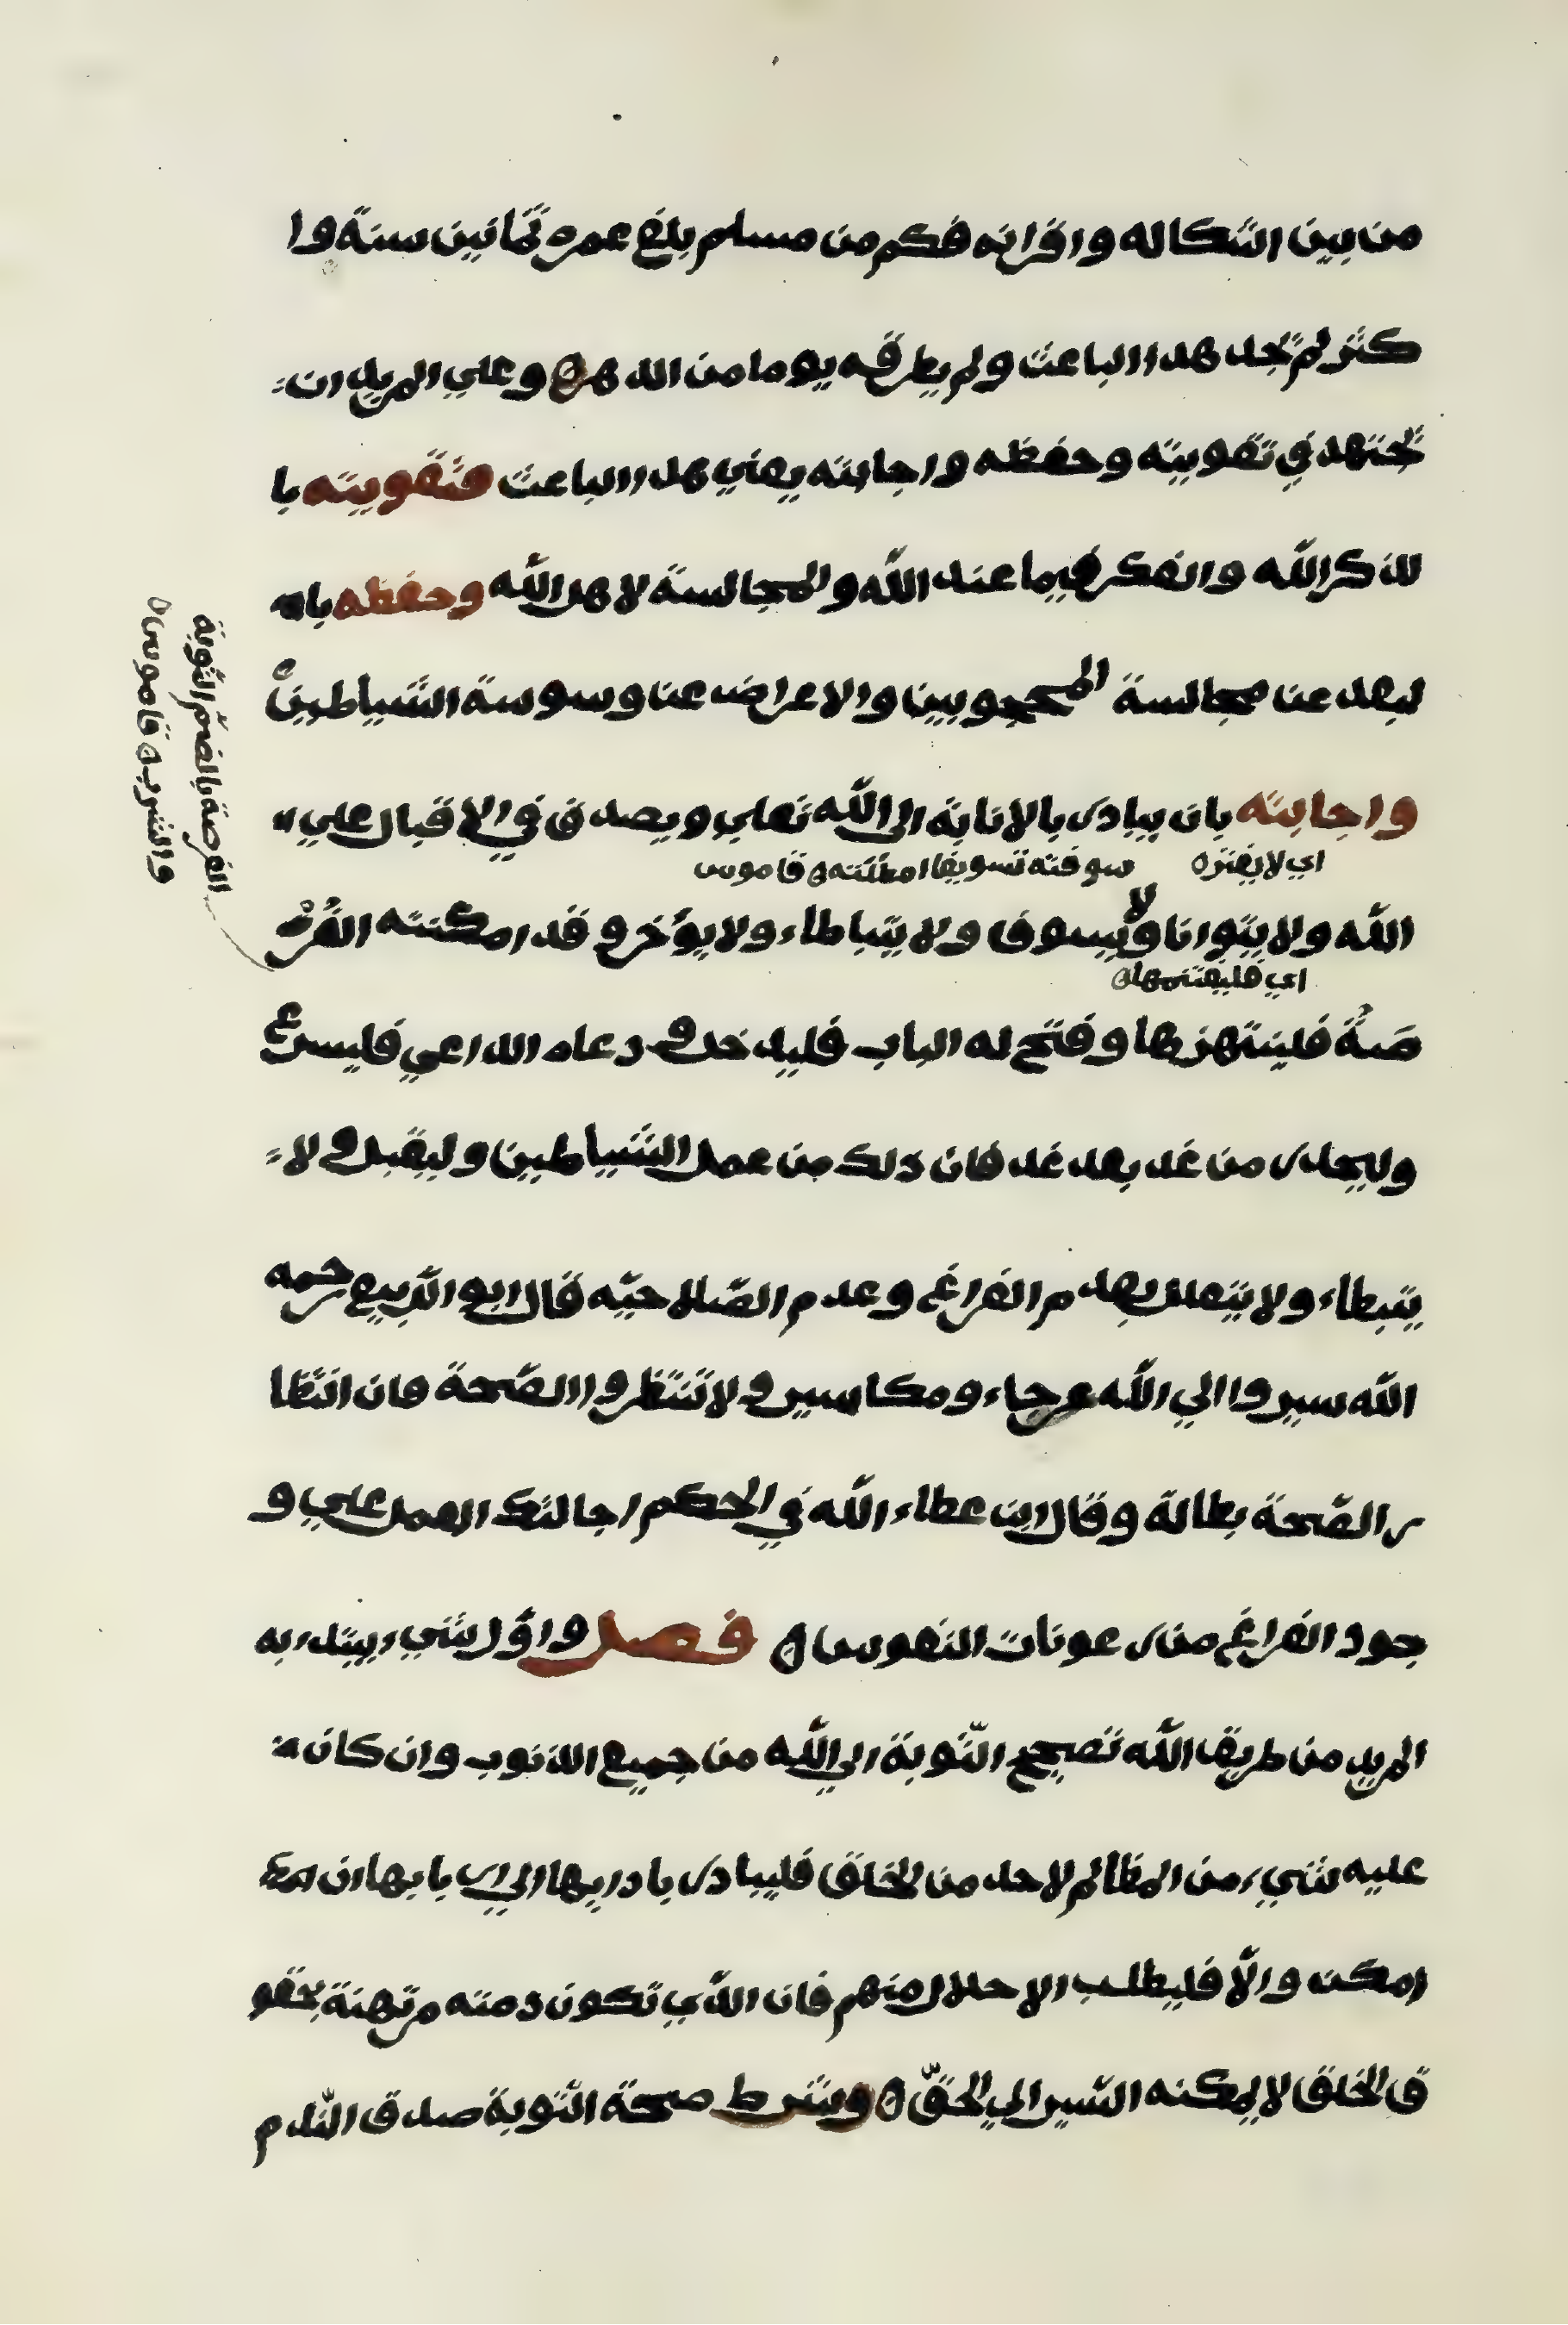 من بين اشكاله واقرانه فكم من مسلم بلغ عمره ثمانين سنة وا
كثر لم تجد هذا الباعث ولم يطرقه يوما من الدهر وعلي المريد ان
تجتهد في تقويته وحفظه واجابته يعني هذا الباعث فتقويته با
لذكر الله والفكر فيما عند الله والمجالسة لاهل الله وحفظه باا
لبعد عن مجالسة المحجوبين والاعراض عن وسوسة الشياطين
واجابته بان يبادر بالانابة الى الله تعلي ويصدق في الاقبال علي
اي لا يفتره
سوفته تسويفا امطلته قاموس
الله ولا يتوانا ولا يسوف ولا يتباطاء ولا يؤخر وقد امكنته الفُرْ
اي فليغتنمها
صَةُ فلينتهزها وفتح له الباب فليدخل ودعاه الداعي فليسرع
وليحذر من غد بعد غد فان ذلك من عمل الشياطين وليقبل ولا
يتبطاء ولا يتعلل بعدم الفراغ وعدم الصّلاحيّه قال ابو الرّبيع رحمه
الله سيروا الي الله عرجاء ومكاسير ولا تنتظروا الصّحة فان انتظا
ر الصّحة بطالة وقال ابن عطاء الله في الحكم احالتك العمل علي و
جود الفراغ من رعونات النفوس فصل واوّل شيء يبتدء به
المريد من طريق الله تصحيح التّوبة الي الله من جميع الذنوب وان كان
عليه شيء من المظالم لاحد من الخلق فليبادر بادايها الي اربابها ان
امكن والاّ فليطلب الاحلال منهم فان الذي تكون ذمته مرتهنة بحقو
ق الخلق لا يمكنه السّير الي الحقّ وشرط صحة التوبة صدق النّدم
الفرصة بالضمّ النّوبة
والشرب قاموس